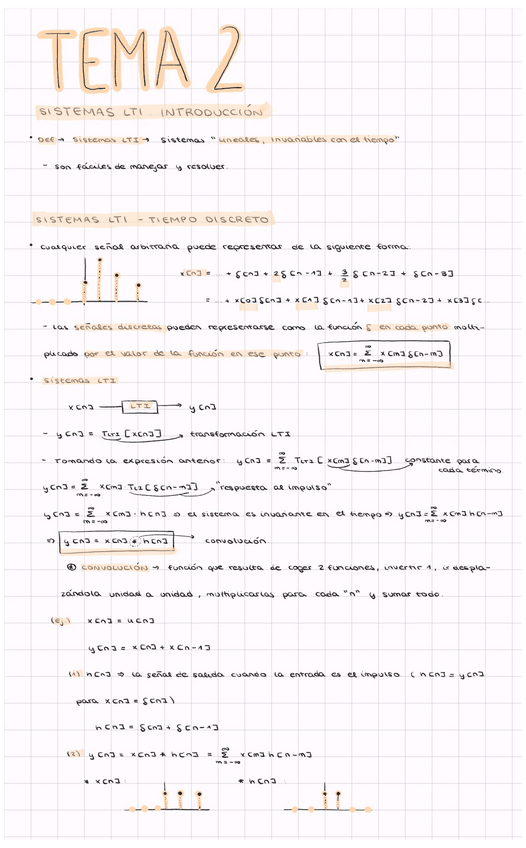 TEMA 2
SISTEMAS LTI. INTRODUCCIÓN
• Def → Sistemas LTI → Sistemas "lineales, invariables con el tiempo"
- son fáciles de manejar y resolver.
SISTEMAS LTI - TIEMPO DISCRETO
• cualquier señal arbitraria puede representar de la siguiente forma:
x[n] = ... + δ[n] + 2δ[n-1] + 3/2 δ[n-2] + δ[n-3]
= ... + x[0]δ[n] + x[1]δ[n-1] + x[2]δ[n-2] + x[3]δ[
- Las señales discretas pueden representarse como la función δ en cada punto multi-
plicado por el valor de la función en ese punto: x[n] = Σ_{m=-∞}^{∞} x[m]δ[n-m]
• Sistemas LTI
x[n] → LTI → y[n]
- y[n] = T_LTI [x[n]] → transformación LTI
- Tomando la expresión anterior: y[n] = Σ_{m=-∞}^{∞} T_LTI [x[m]δ[n-m]] constante para
cada término
y[n] = Σ_{m=-∞}^{∞} x[m] · T_LTI [δ[n-m]] → "respuesta al impulso"
y[n] = Σ_{m=-∞}^{∞} x[m] · h[n] ⇒ el sistema es invariante en el tiempo ⇒ y[n] = Σ_{m=-∞}^{∞} x[m]h[n-m]
⇒ y[n] = x[n] * h[n] → convolución.
CONVOLUCIÓN → función que resulta de coger 2 funciones, invertir 1, ir despla-
zándola unidad a unidad, multiplicarlas para cada "n" y sumar todo.
(ej.) x[n] = u[n]
y[n] = x[n] + x[n-1]
(1) h[n] ⇒ la señal de salida cuando la entrada es el impulso (h[n] = y[n]
para x[n] = δ[n])
h[n] = δ[n] + δ[n-1]
(2) y[n] = x[n] * h[n] = Σ_{m=-∞}^{∞} x[m]h[n-m]
* x[n]: * h[n]: